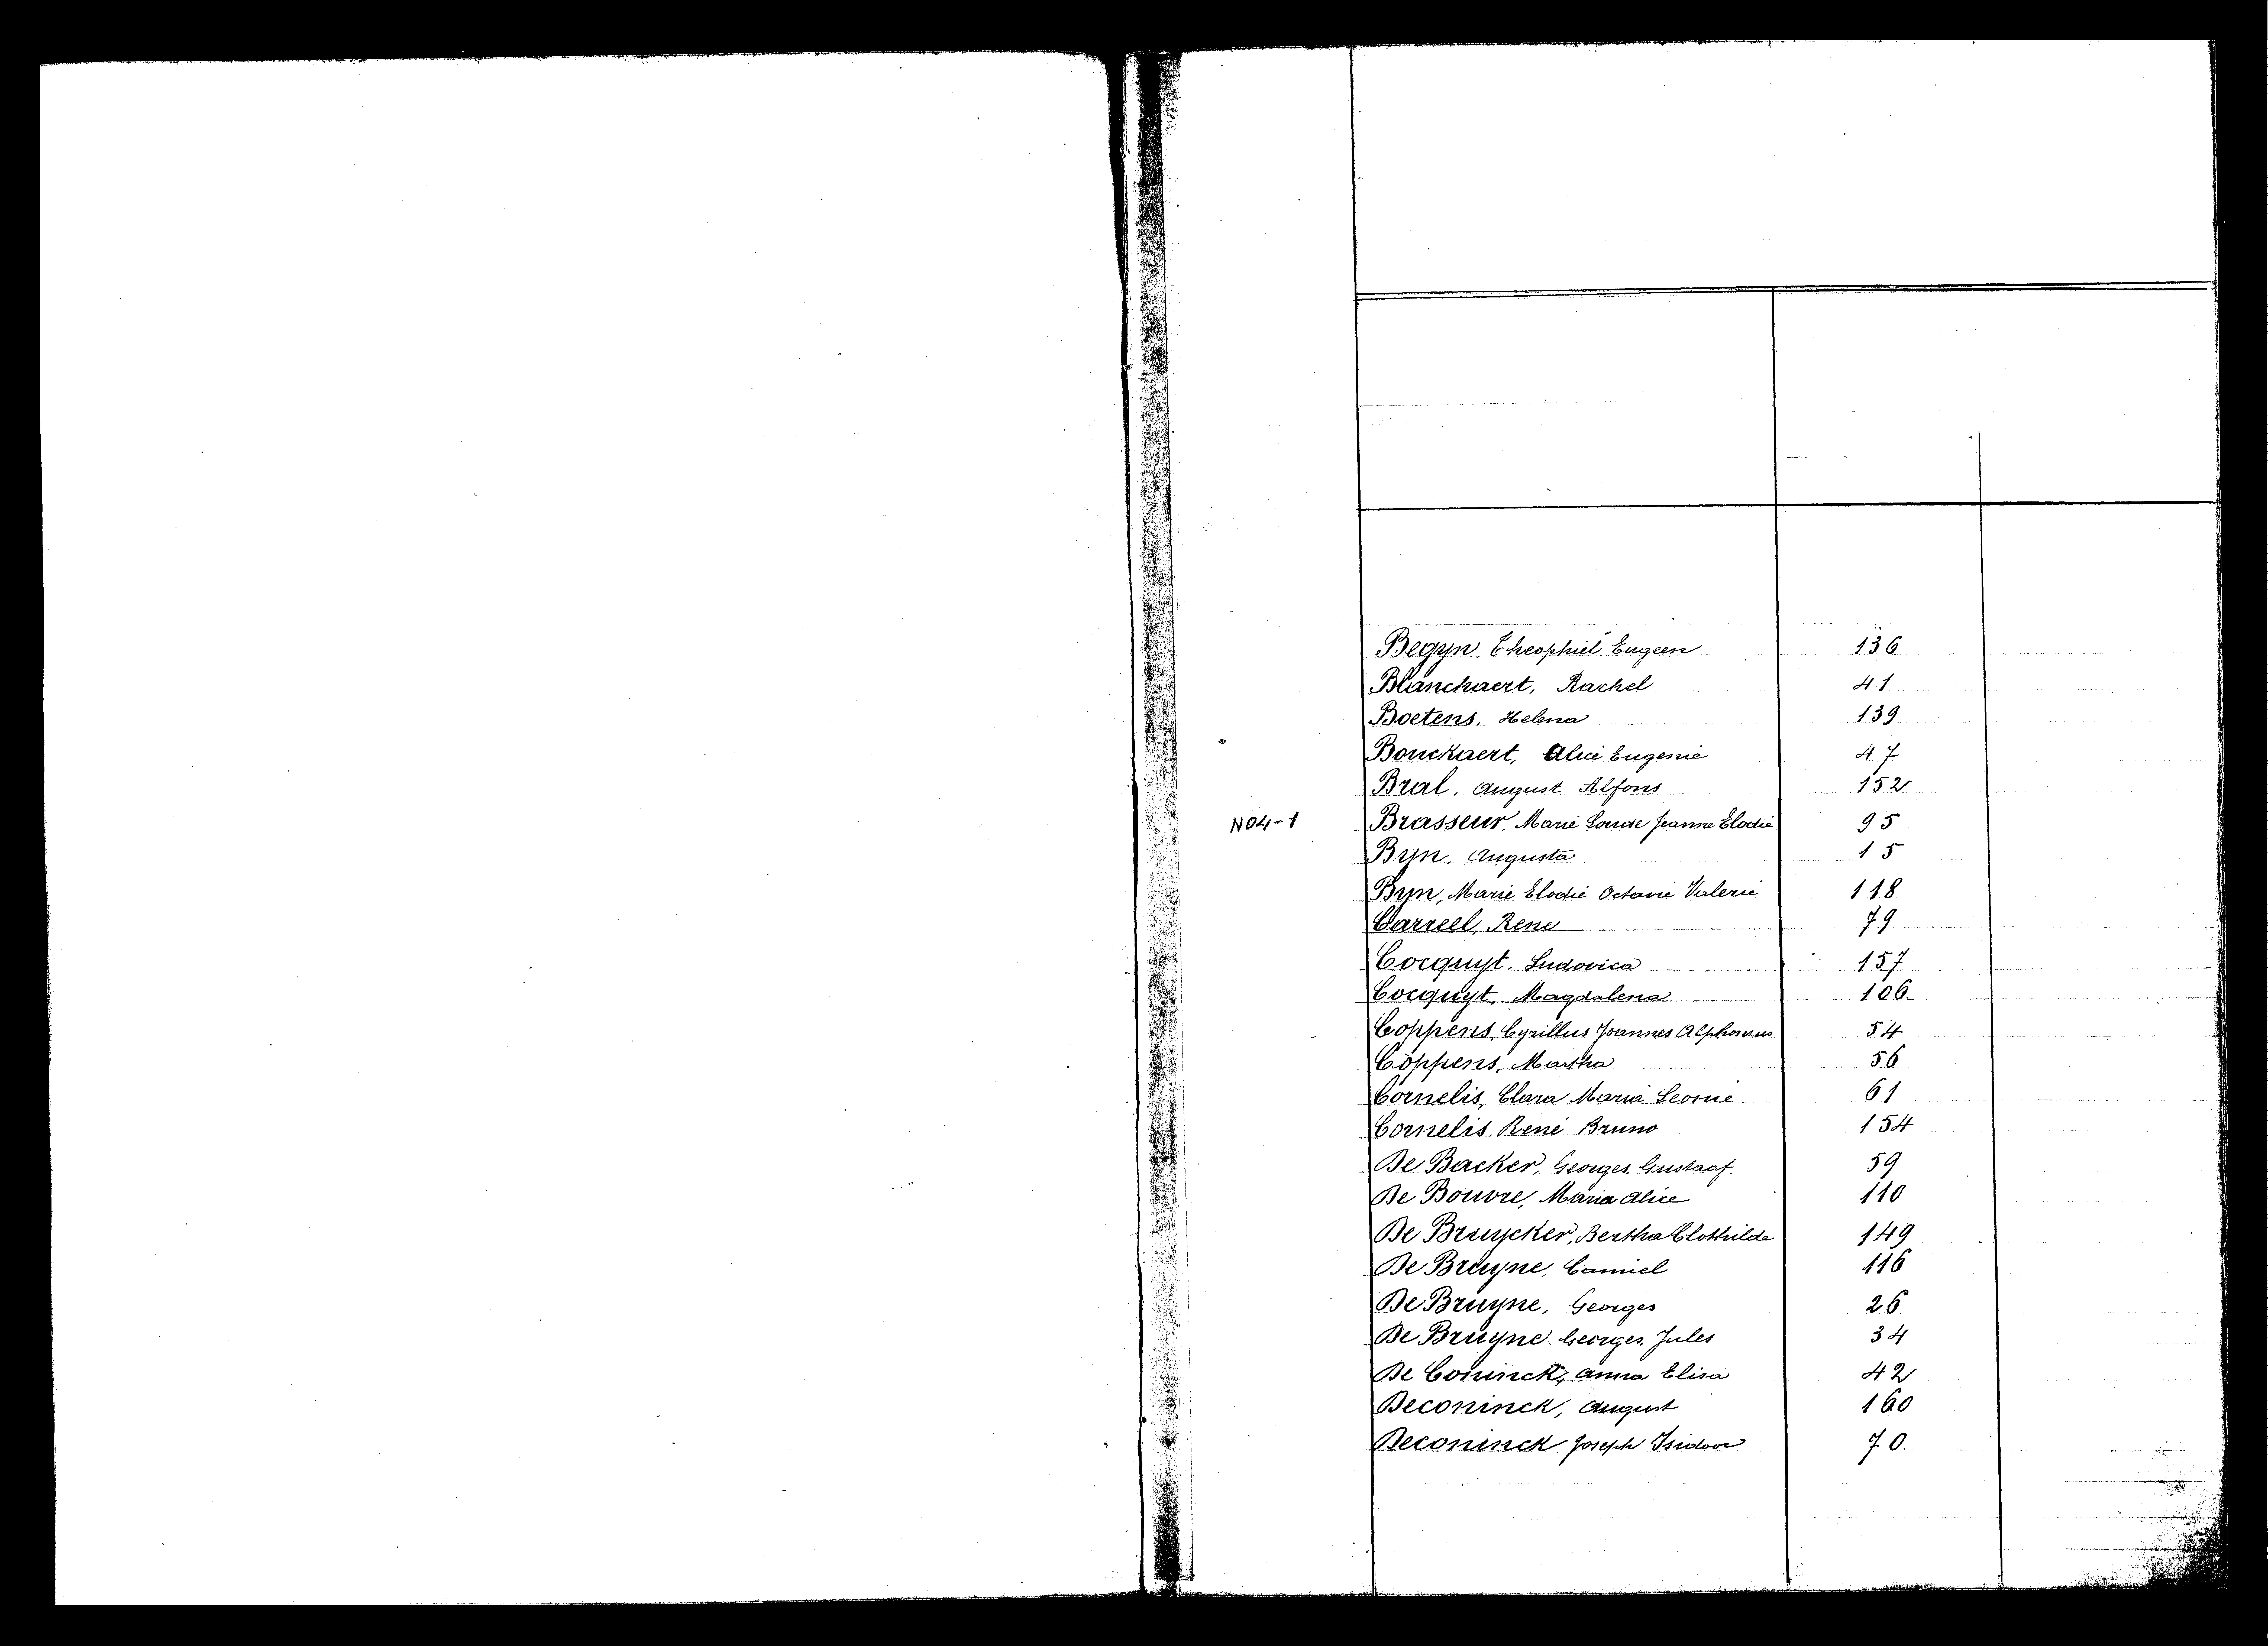 Begyn, Theophiel Eugeen 136
Blanckaert, Rachel 41
Boetens, Helena 139
Bouckaert, Alice Eugenie 47
Bral, August Alfons 152
N04-1 Brasseur, Marie Louise Jeanne Elodie 95
Byn, Augusta 15
Byn, Marie Elodie Octavie Valerie 118
Carreel, Rene 79
Cocquyt, Ludovica 157
Cocquyt, Magdalena 106
Coppens, Cyrillus Joannes Alphonsus 54
Coppens, Martha 56
Cornelis, Clara Maria Leonie 61
Cornelis René Bruno 154
De Backer, Georges Gustaaf 59
De Bouvre, Maria Alice 110
De Bruycker, Bertha Clothilde 149
De Bruyne, Camiel 116
De Bruyne, Georges 26
De Bruyne Georges Jules 34
De Coninck, Anna Elisa 42
Deconinck, August 160
Deconinck, Joseph Isidoor 70.